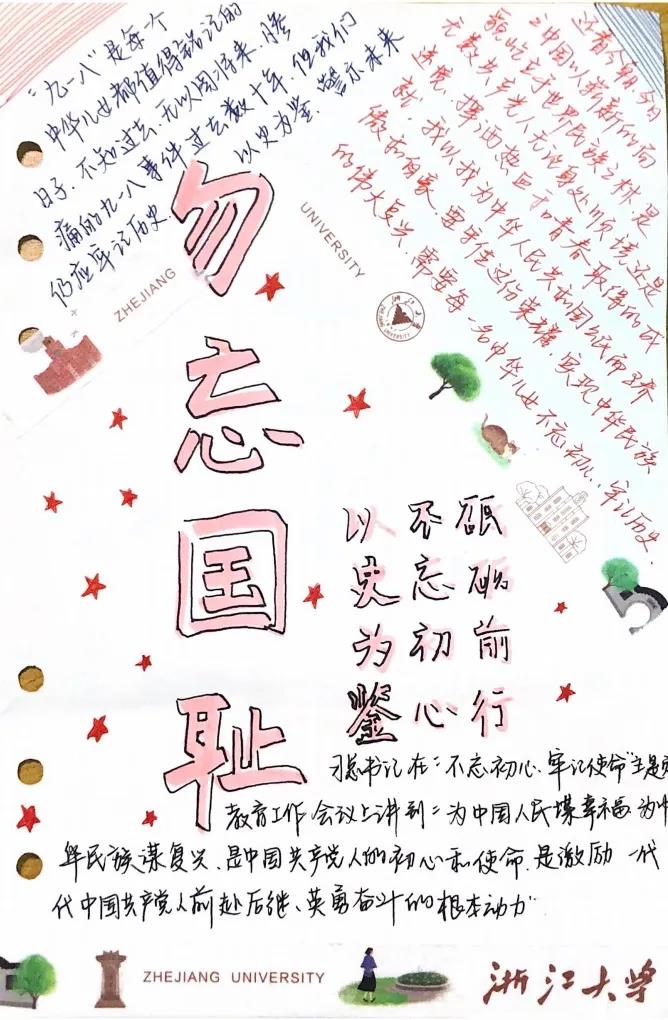 “九一八”是每个
中华儿女都值得铭记的
日子,不知过去,无以图将来,惨
痛的九一八事件过去数十年,但我们
仍应牢记历史,
以史为鉴、警示未来
还看今朝,今日
之中国以崭新的面
貌屹立于世界民族之林,是
无数共产党人无论身处顺境还是
逆境,挥洒热血和青春取得的成
就,我以我为中华人民共和国公民而骄
傲和自豪,要守住这份荣耀,实现中华民族
的伟大复兴,需要每一名中华儿女不忘初心、牢记历史
勿
忘
国
耻
ZHEJIANG
UNIVERSITY
以史为鉴
不忘初心
砥砺前行
习总书记在:“不忘初心、牢记使命”主题
教育工作会议上讲到:为中国人民谋幸福、为中
华民族谋复兴、是中国共产党人的初心和使命,是激励一代
代中国共产党人前赴后继、英勇奋斗的根本动力”
ZHEJIANG UNIVERSITY
浙江大学